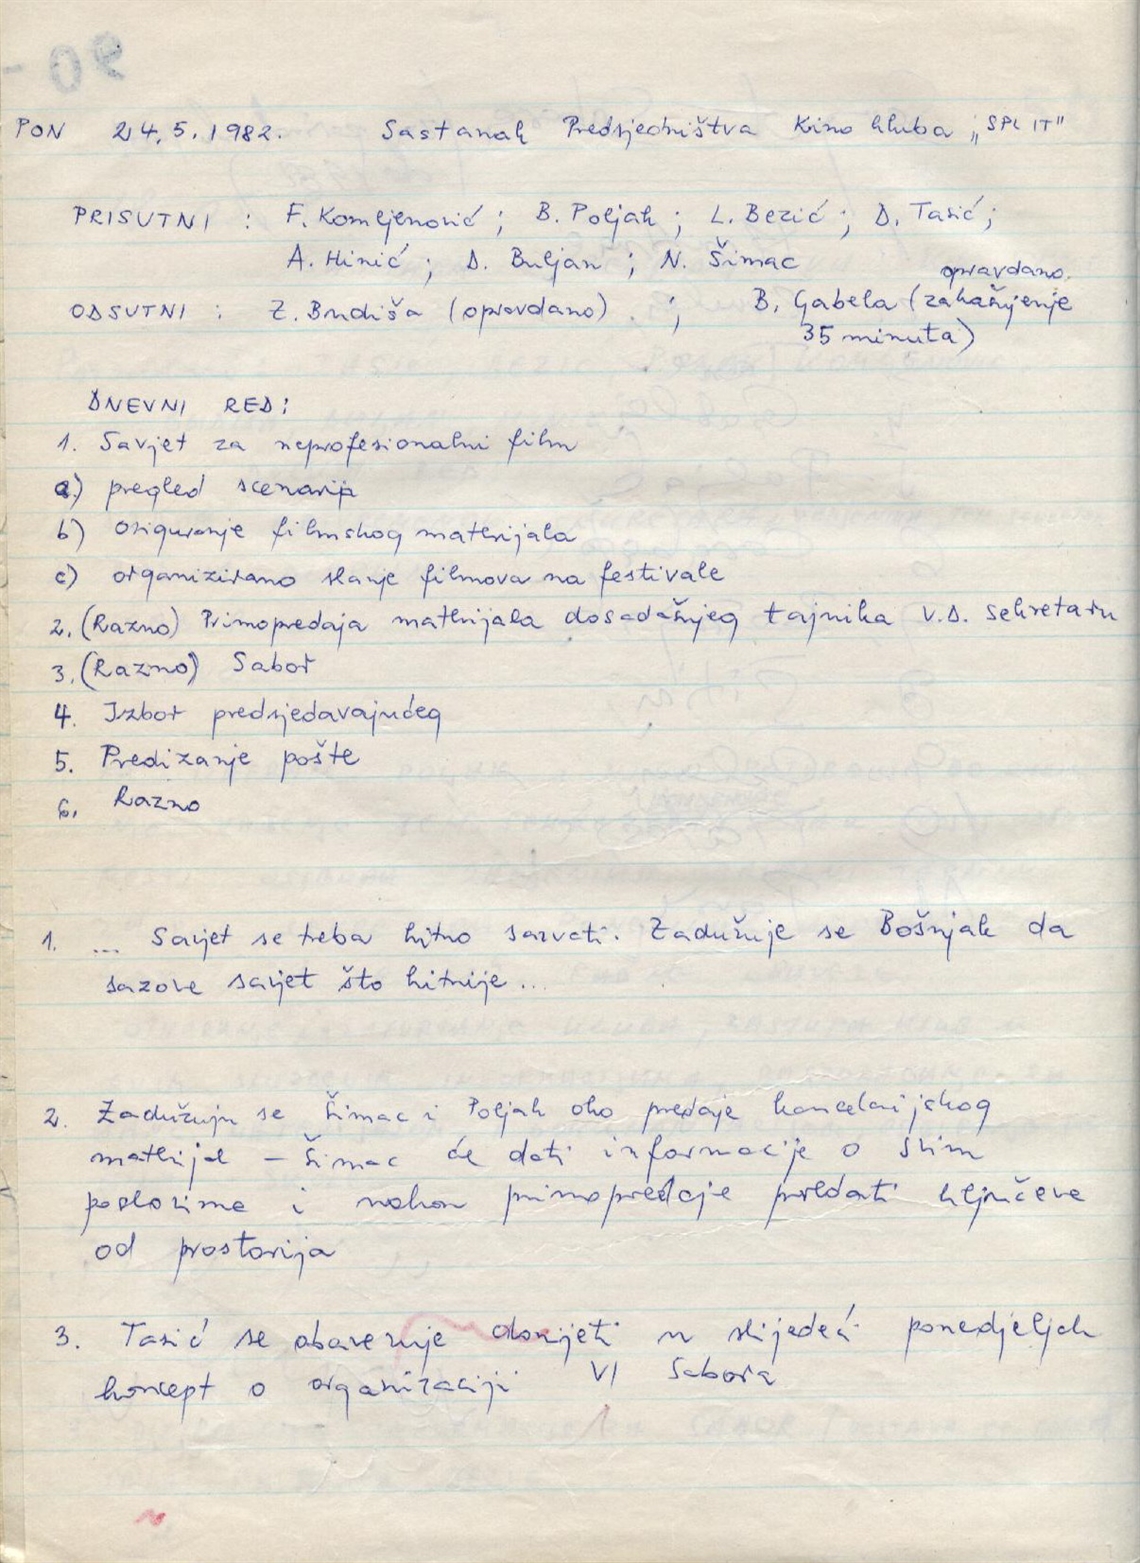 PON 24.5.1982. Sastanak Predsjedništva Kino kluba „SPLIT"
PRISUTNI : F. Komljenović ; B. Poljak ; L. Bezić ; D. Tasić ;
A. Hinić ; D. Buljan ; N. Šimac
opravdano
ODSUTNI : Z. Budiša (opravdano) ; B. Gabela (zakašnjenje
35 minuta)
DNEVNI RED:
1. Savjet za neprofesionalni film
a) pregled scenarija
b) osiguranje filmskog materijala
c) organizirano slanje filmova na festivale
2. (Razno) Primopredaja materijala dosadašnjeg tajnika V.D. sekretaru
3. (Razno) Sabor
4. Izbor predsjedavajućeg
5. Predizanje pošte
6. Razno
1. ... Savjet se treba hitno sazvati. Zadužuje se Bošnjak da
sazove savjet što hitnije...
2. Zadužuju se Šimac i Poljak oko predaje kancelarijskog
materijal – Šimac će dati informacije o svim
poslovima i nakon primopredaje predati ključeve
od prostorija
3. Tasić se obavezuje donijeti u slijedeći ponedjeljak
koncept o organizaciji VI Sabora